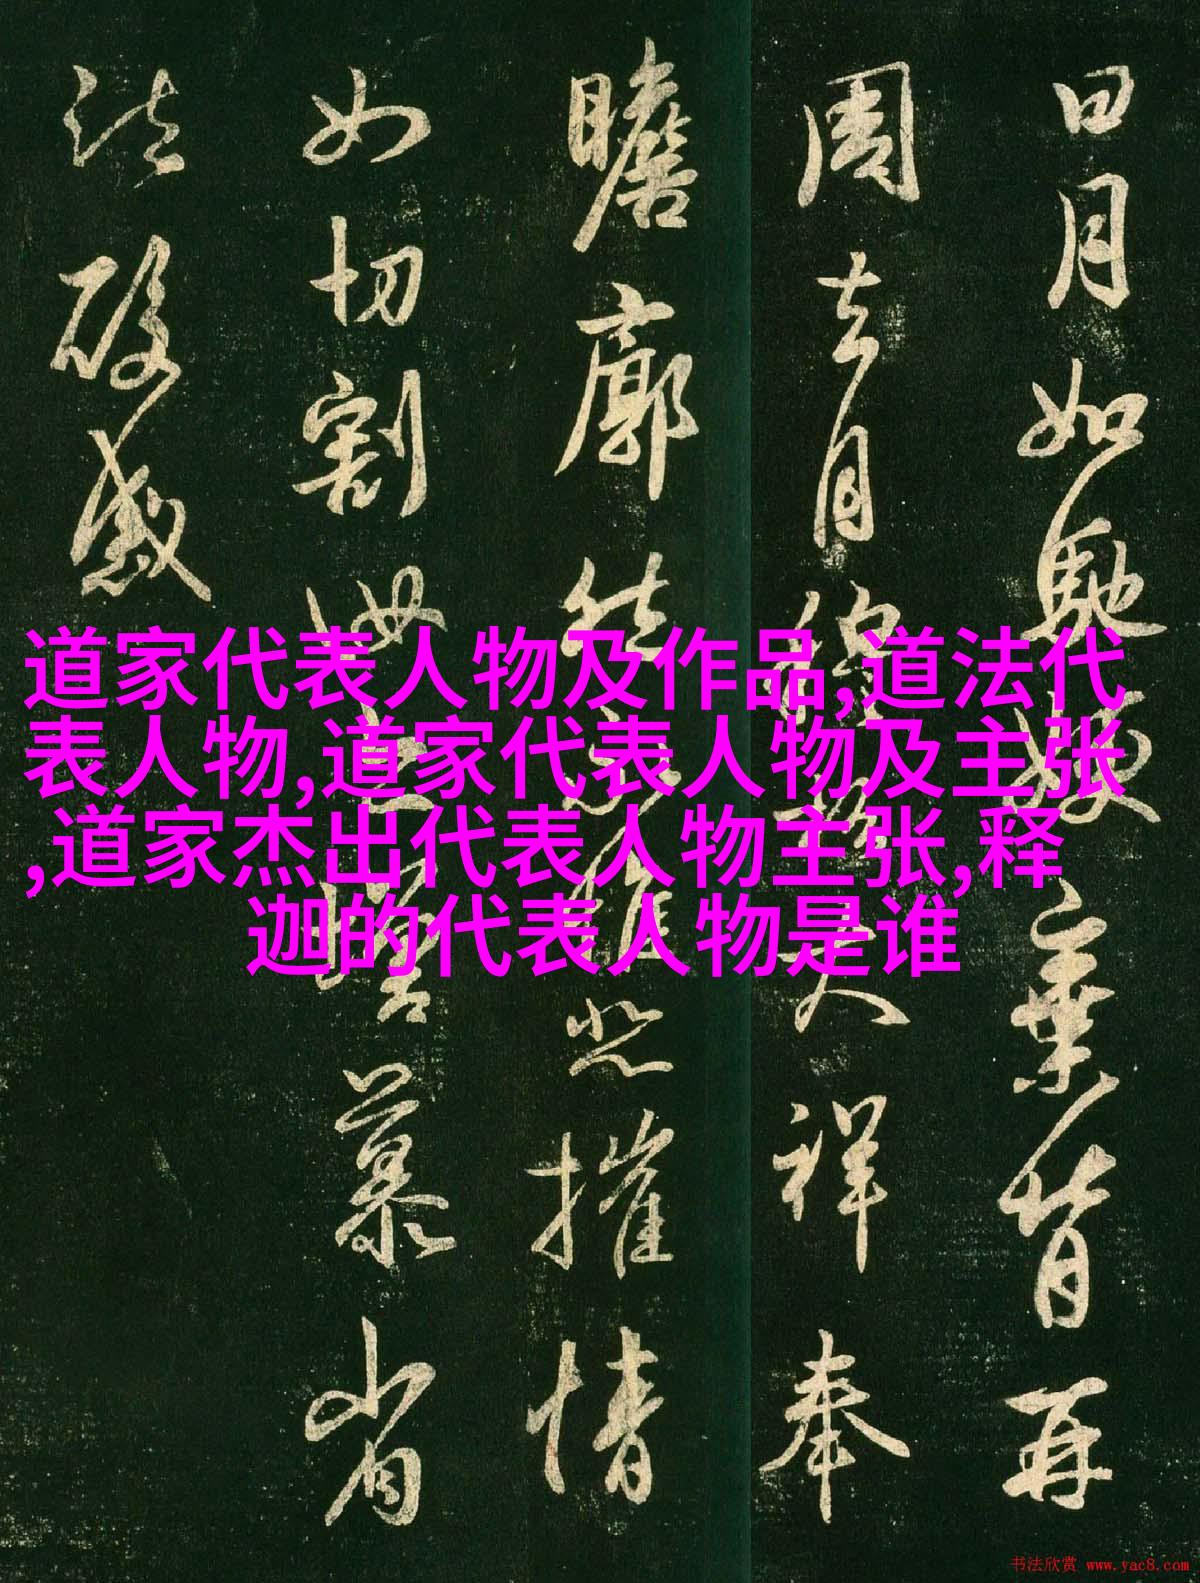 日月如馳嫂棄背再
周去月大祥奉
瞻廓然悲摧情
如切割慕省
酸感
道家代表人物及作品,道法代
表人物,道家代表人物及主张
,道家杰出代表人物主张,释
迦的代表人物是谁
书法欣赏 www.yac8.com